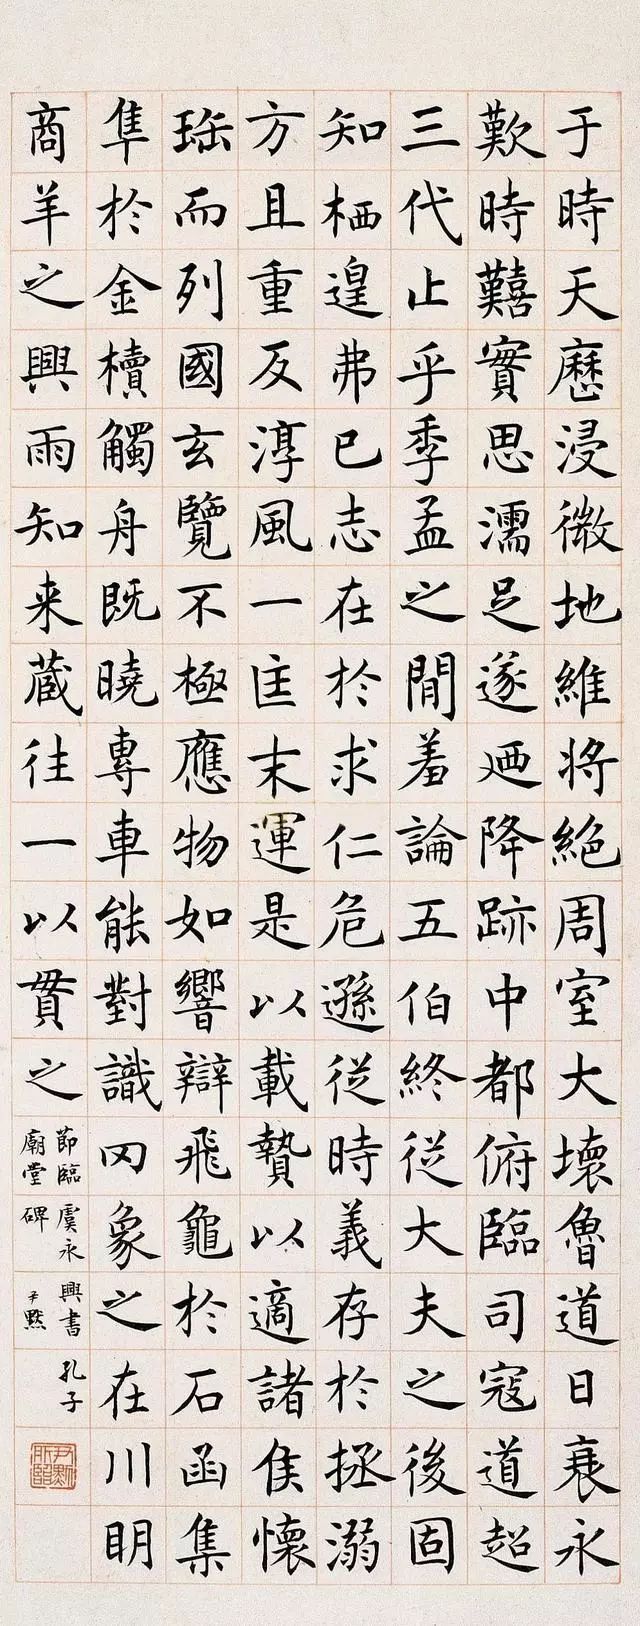 于時天歷浸微地維將絕周室大壞魯道日衰永
歎時囏實思濡足遂迺降跡中都俯臨司寇道超
三代止乎季孟之閒羞論五伯終從大夫之後固
知栖遑弗已志在於求仁危遜從時義存於拯溺
方且重反淳風一匡末運是以載贄以適諸侯懷
珤而列國玄覽不極應物如響辯飛龜於石函集
隼於金櫝觸舟既曉專車能對識罔象之在川明
商羊之興雨知来藏往一以貫之
節臨虞永興書孔子
廟堂碑 尹默
尹默所臨